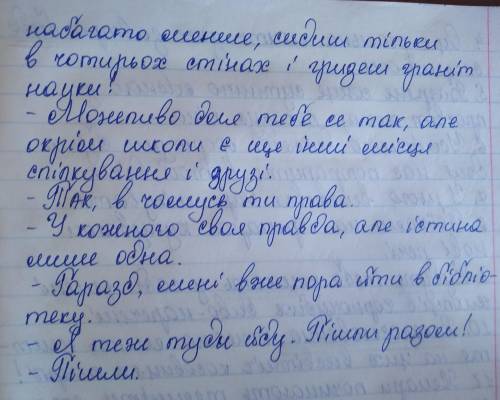 набагато менше, сидиш тільки
в чотирьох стінах і гризеш граніт
науки!
- Можливо для тебе це так, але
окрім школи є ще інші місця
спілкування і друзі.
- Так, в чомусь ти права.
- У кожного своя правда, але істина
лише одна.
- Гаразд, мені вже пора йти в бібліо-
теку.
- Я теж туди йду. Пішли разом!
- Пішли.